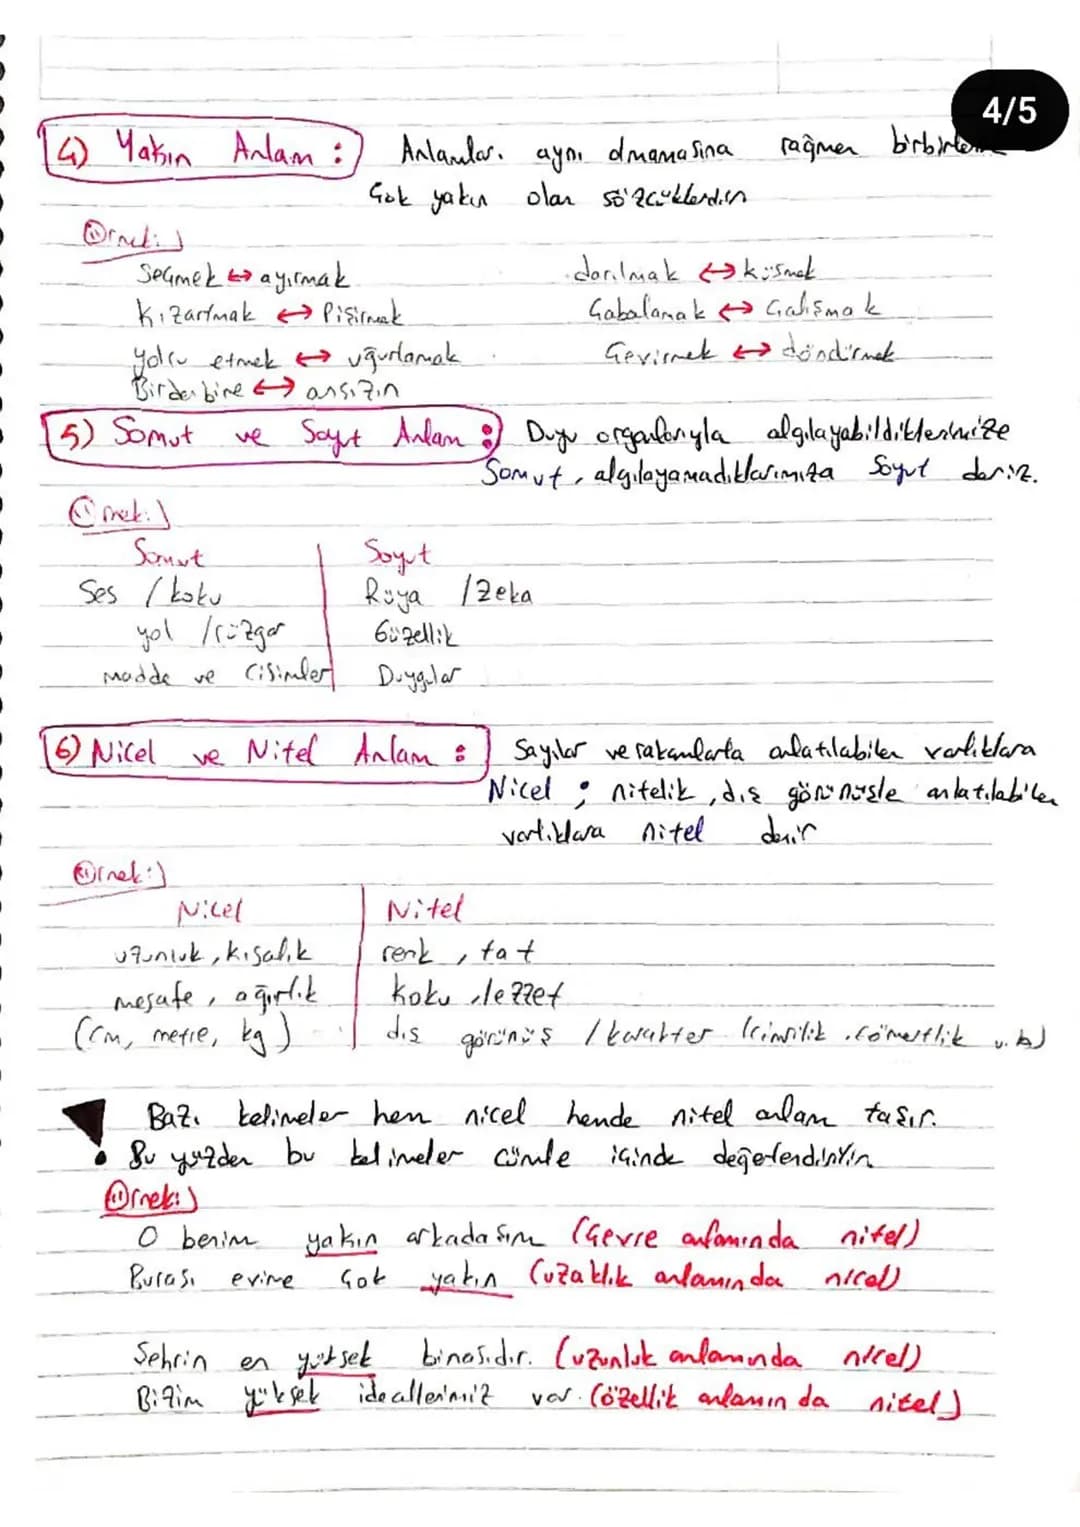 4/5
4) Yakın Anlam : Anlamları aynı olmamasına rağmen birbirlerine
çok yakın olan sözcüklerdir
Örnek:)
Seçmek ↔ ayırmak
darılmak ↔ küsmek
Kızartmak ↔ Pişirmek
Çabalamak ↔ Çalışmak
yolcu etmek ↔ uğurlamak
Çevirmek ↔ döndürmek
Birdenbire ↔ ansızın
5) Somut ve Soyut Anlam : Duyu organlarıyla algılayabildiklerimize
Somut, algılayamadıklarımıza Soyut deriz.
Örnek:)
Somut Soyut
Ses / koku Rüya / Zeka
yol / rüzgar Güzellik
madde ve Cisimler Duygular
6) Nicel ve Nitel Anlam : Sayılar ve rakamlarla anlatılabilen varlıklara
Nicel ; nitelik, dış görünüşle anlatılabilen
varlıklara nitel denir
Örnek:)
Nicel Nitel
uzunluk, kısalık renk, tat
mesafe, ağırlık koku, lezzet
(cm, metre, kg) dış görünüş / karakter (cimrilik, cömertlik v.b)
! Bazı kelimeler hem nicel hemde nitel anlam taşır.
Bu yüzden bu kelimeler cümle içinde değerlendirilir
Örnek:)
O benim yakın arkadaşım (Çevre anlamında nitel)
Burası evime çok yakın (uzaklık anlamında nicel)
Şehrin en yüksek binasıdır. (uzunluk anlamında nicel)
Bizim yüksek ideallerimiz var. (özellik anlamında nitel)